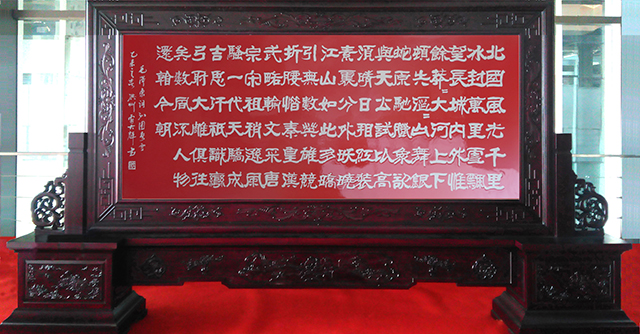 北國風光千里
冰封萬里雪飄
望長城內外惟
餘莽=大河上下
頓失滔=山舞銀
蛇原馳蠟象欲
與天公試比高
須晴日看紅裝
素裹分外妖嬈
江山如此多嬌
引無數英雄競
折腰惜秦皇漢
武略輸文采唐
宗宋祖稍遜風
騷一代天驕成
吉思汗祇識彎
弓射大雕俱往
矣數風流人物
還看今朝
毛澤東詞沁園春雪